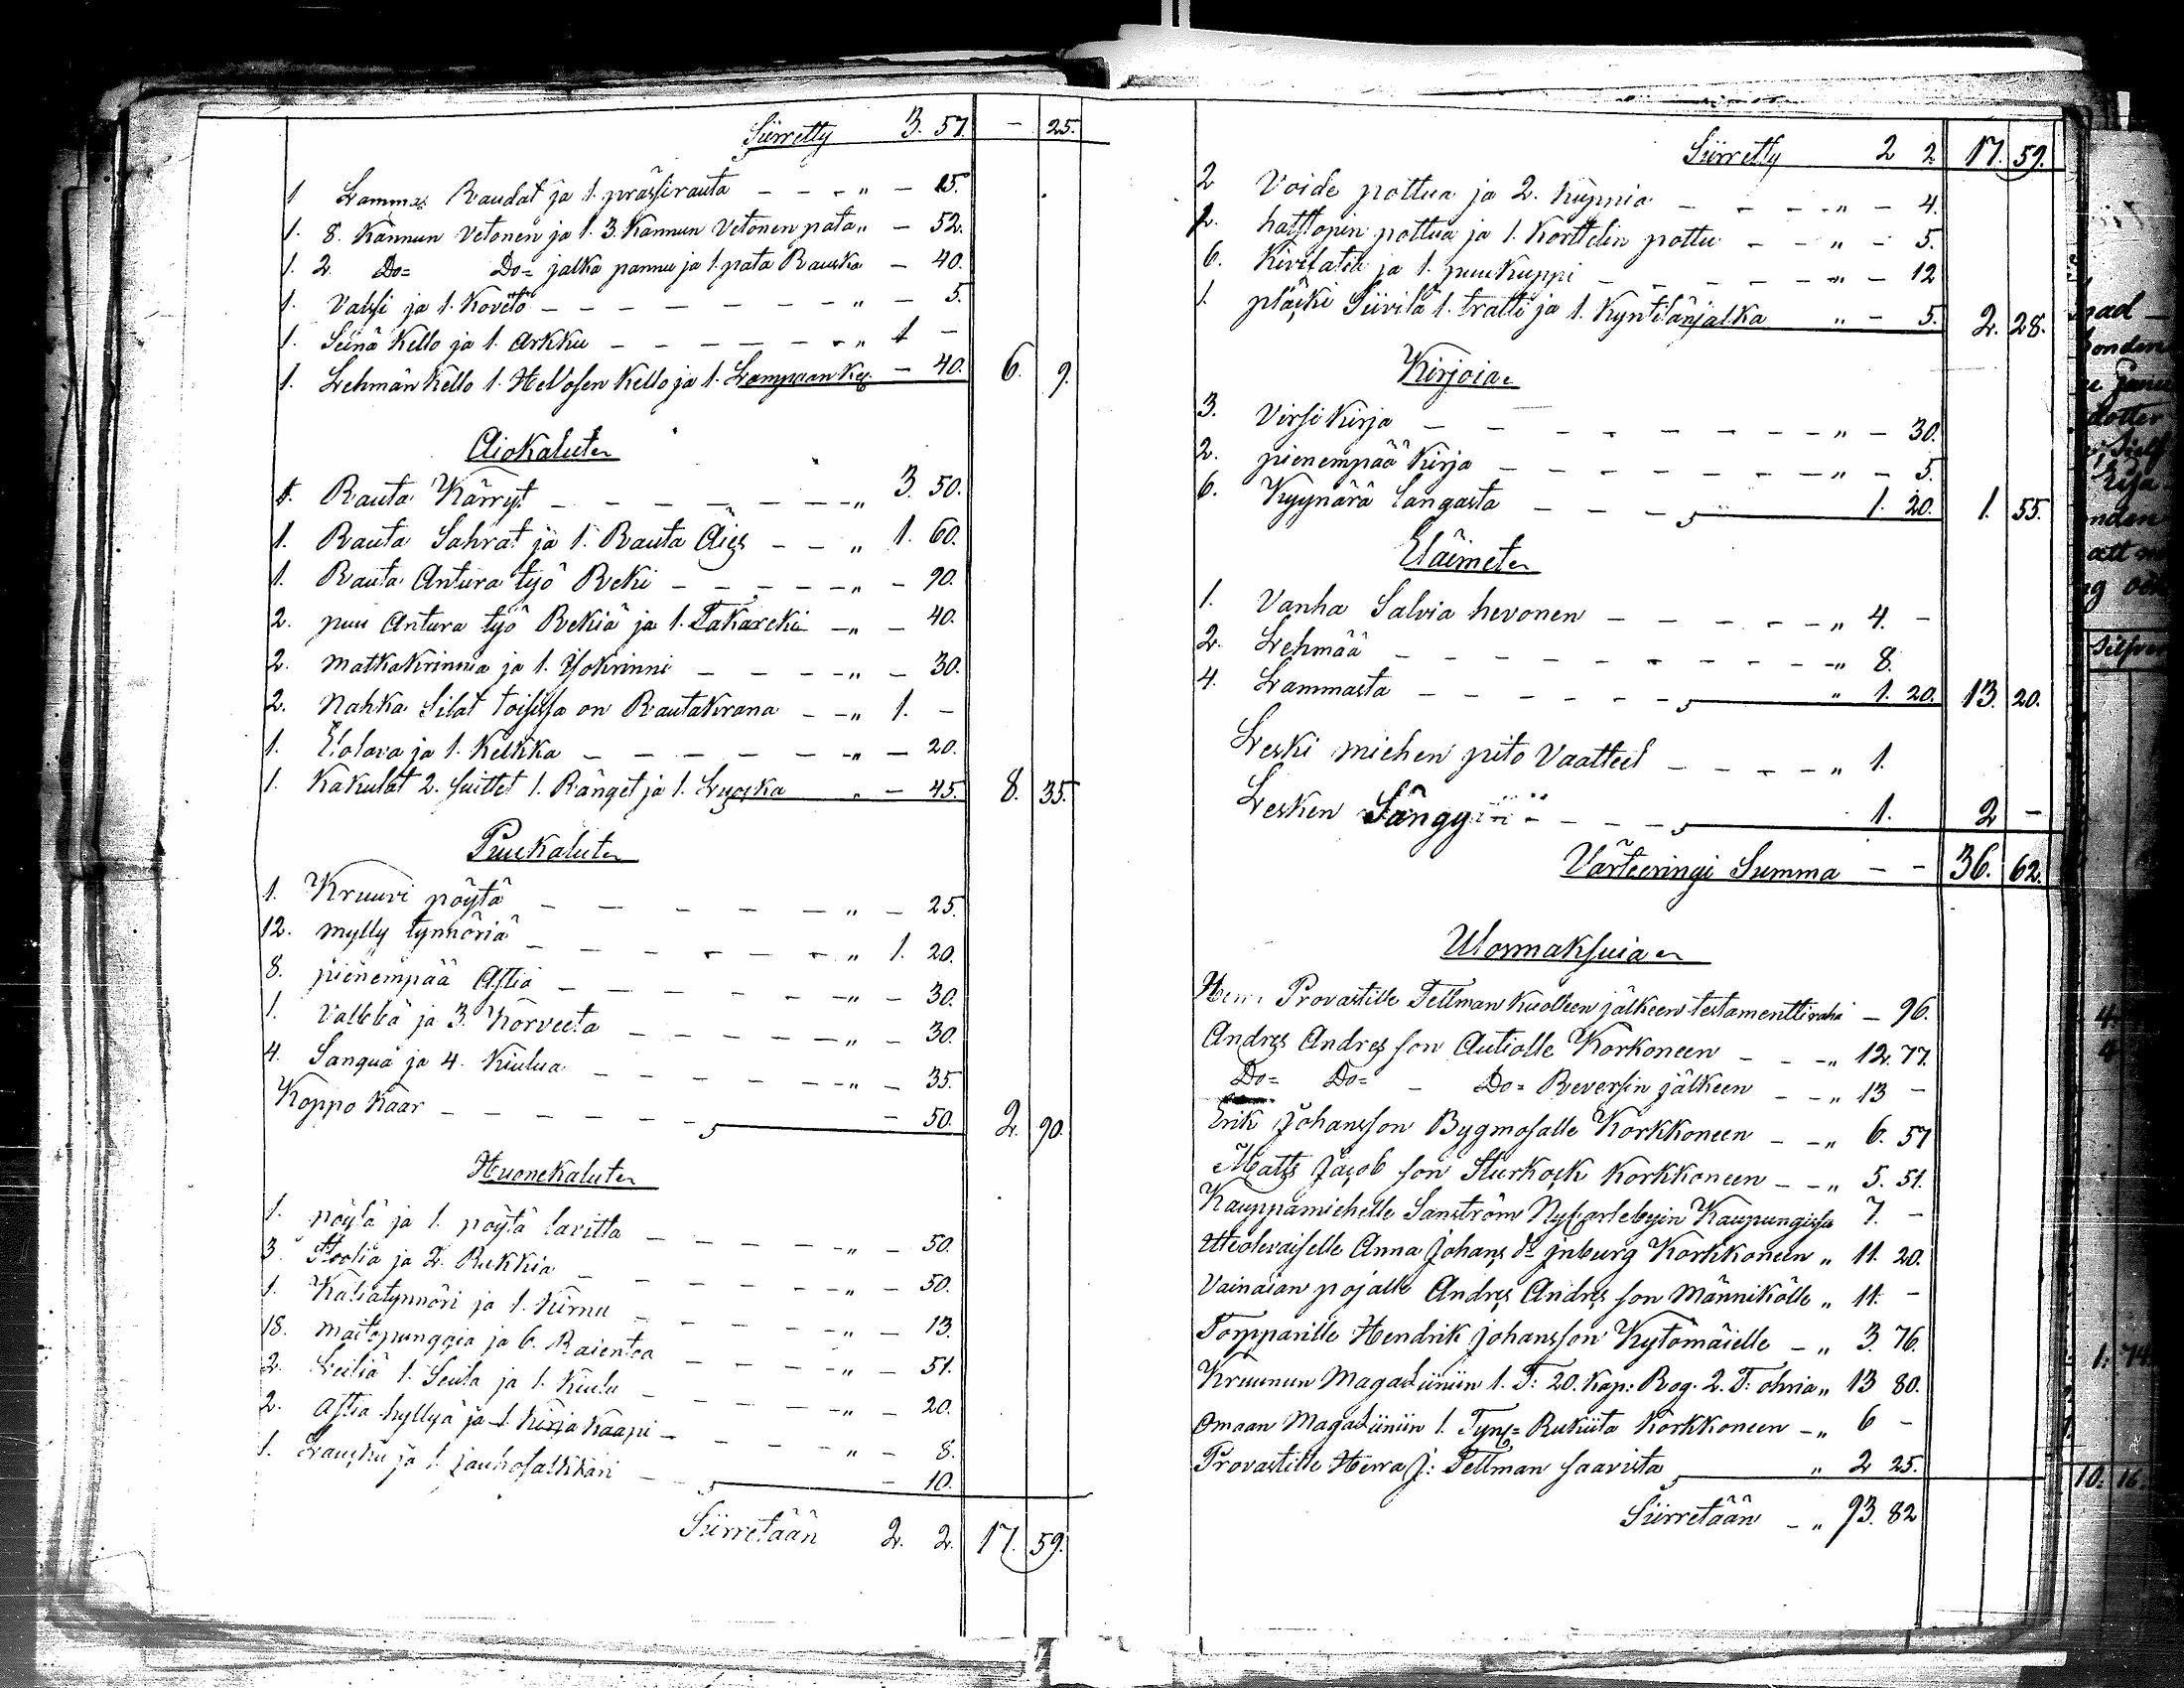 Siirretty 3. 57. - 25.
1 Lammas Raudat ja 1. prässirauta - - - " - 15.
1. 8. Kannun Vetonen ja 1. 3. Kannun Vetonen pata " - 52.
1. 2. Do= Do= jalka pannu ja 1. pata Rauska - 40.
1. Vassi ja 1. Kovēto - - - - - - - " - 5.
1. Seinä Kello ja 1. Arkku - - - - - - " 1 -
1. Lehmän Kello 1. Hevosen Kello ja 1. Lampaan - 40. 6. 9.
Aiokalut
1. Rauta Kärryt - - - - - - " 3. 50.
1. Rauta Sahrat ja 1. Rauta Äies - - " 1. 60.
1. Rauta Antura työ Reki - - - - - " - 90.
2. puu Antura työ Rekiä ja 1. Takareki - " - 40.
2. matkakrinnia ja 1. Isokrinni - - - - " - 30.
2. Nahka Silat toisissa on Rautakrana - - " 1. -
1. Elolava ja 1. Kelkka - - - - - - " - 20.
1. Kakulat 2. Suittet 1. Ränget ja 1. Luocka - 45. 8. 35.
Puukalut
1. Kruuvi pöytä - - - - - " - 25.
12. mylly tynnöriä - - - - - - " 1. 20.
8. pienempää Astia - - - - - - " - 30.
1. Valllä ja 3. Korveeta - - - - - " - 30.
4. Sangua ja 4. Kiulua - - - - - " - 35.
Koppo Kaar - - - - - - 50. 2. 90.
Huonekalut
1. pöytä ja 1. pöytä lavitta - - - - - " - 50.
3. Stolia ja 2. Rukkia - - - - - - " - 50.
1. Kaliatynnöri ja 1. Kirnu - - - - - " - 13.
18. maitopunggia ja 6. Raienta - - - - " - 51.
2. Leiliä 1. Seula ja 1. Kiulu - - - - " - 20.
2. Astia hyllyä ja 1. Kirja Kaapi - - - - - " - 8.
1. ja 1. jauhosalkkari - - 10.
Siirretään 2. 2. 17. 59.
Siirretty 2 2 17. 59.
2 Voide pottua ja 2. Kuppia - - - - " - 4.
2. halstopin pottua ja 1. Korttelin pottu - - " - 5.
6. Kivifatia ja 1. puu Kuppi - - - - - " - 12
1. pläcki Siivilä 1. tratti ja 1. Kyntilänjalka " - 5. 2. 28.
Kirjoia
3. Virsi Kirja - - - - - - - - " - 30.
2. pienempää Kirja - - - - - - - " - 5.
6. Kyynärä langasta - - - - 1. 20. 1. 55.
Eläimet
1. Vanha Salvia hevonen - - - - - " 4. -
2. Lehmää - - - - - - - - - " 8.
4. Lammasta - - - - - - " 1. 20. 13. 20.
Leski miehen pito Vaatteet - - - - " 1.
Lesken Sängy - - - 1. 2 -
Värteeringi Summa - - 36. 62.
Ulosmaksuia
Provastille Fellman Kuolleen jälkeen testamenttiraha - 96.
Andrs Andrs son Autiolle Korkoneen - - " 12. 77.
Do= Do= - Do= Reversin jälkeen - - " 13 -
Erik Johansson Bygmosalle Korkkoneen - - " 6. 57
Matts Jacob son Sturkock Korkkoneen - - " 5. 51.
Kauppamiehelle Sanström Nycarlebyin Kaupungissa 7. -
Itteolevaiselle Anna Johans dr Inburg Korkkoneen " 11. 20.
Vainaian pojalle Andrs Andrs son Männikölle " 11. -
Torpparille Hendrik Johansson Kytömäielle - " 3. 76.
Kruunun Magasiiniin 1. T: 20. Kap: Rog. 2. T: ohria " 13 80.
Omaan Magasiiniin 1. Tyn= Rukiita Korkkoneen - " 6 -
Provastille Herra J: Fellman saavista " 2 25.
Siirretään - " 93. 82